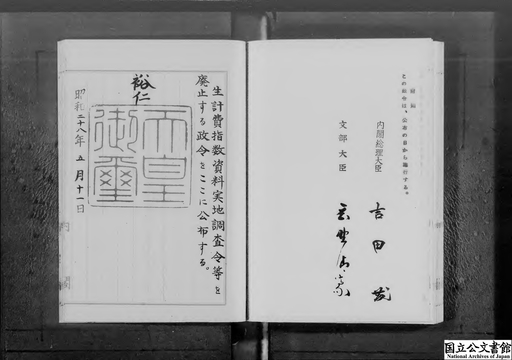 附則
この政令は、公布の日から施行する。
内閣総理大臣
吉田茂
文部大臣
生計費指数資料実地調査令等を
廃止する政令をここに公布する。
裕仁
天皇
御璽
昭和二十八年五月十一日
国立公文書館
National Archives of Japan